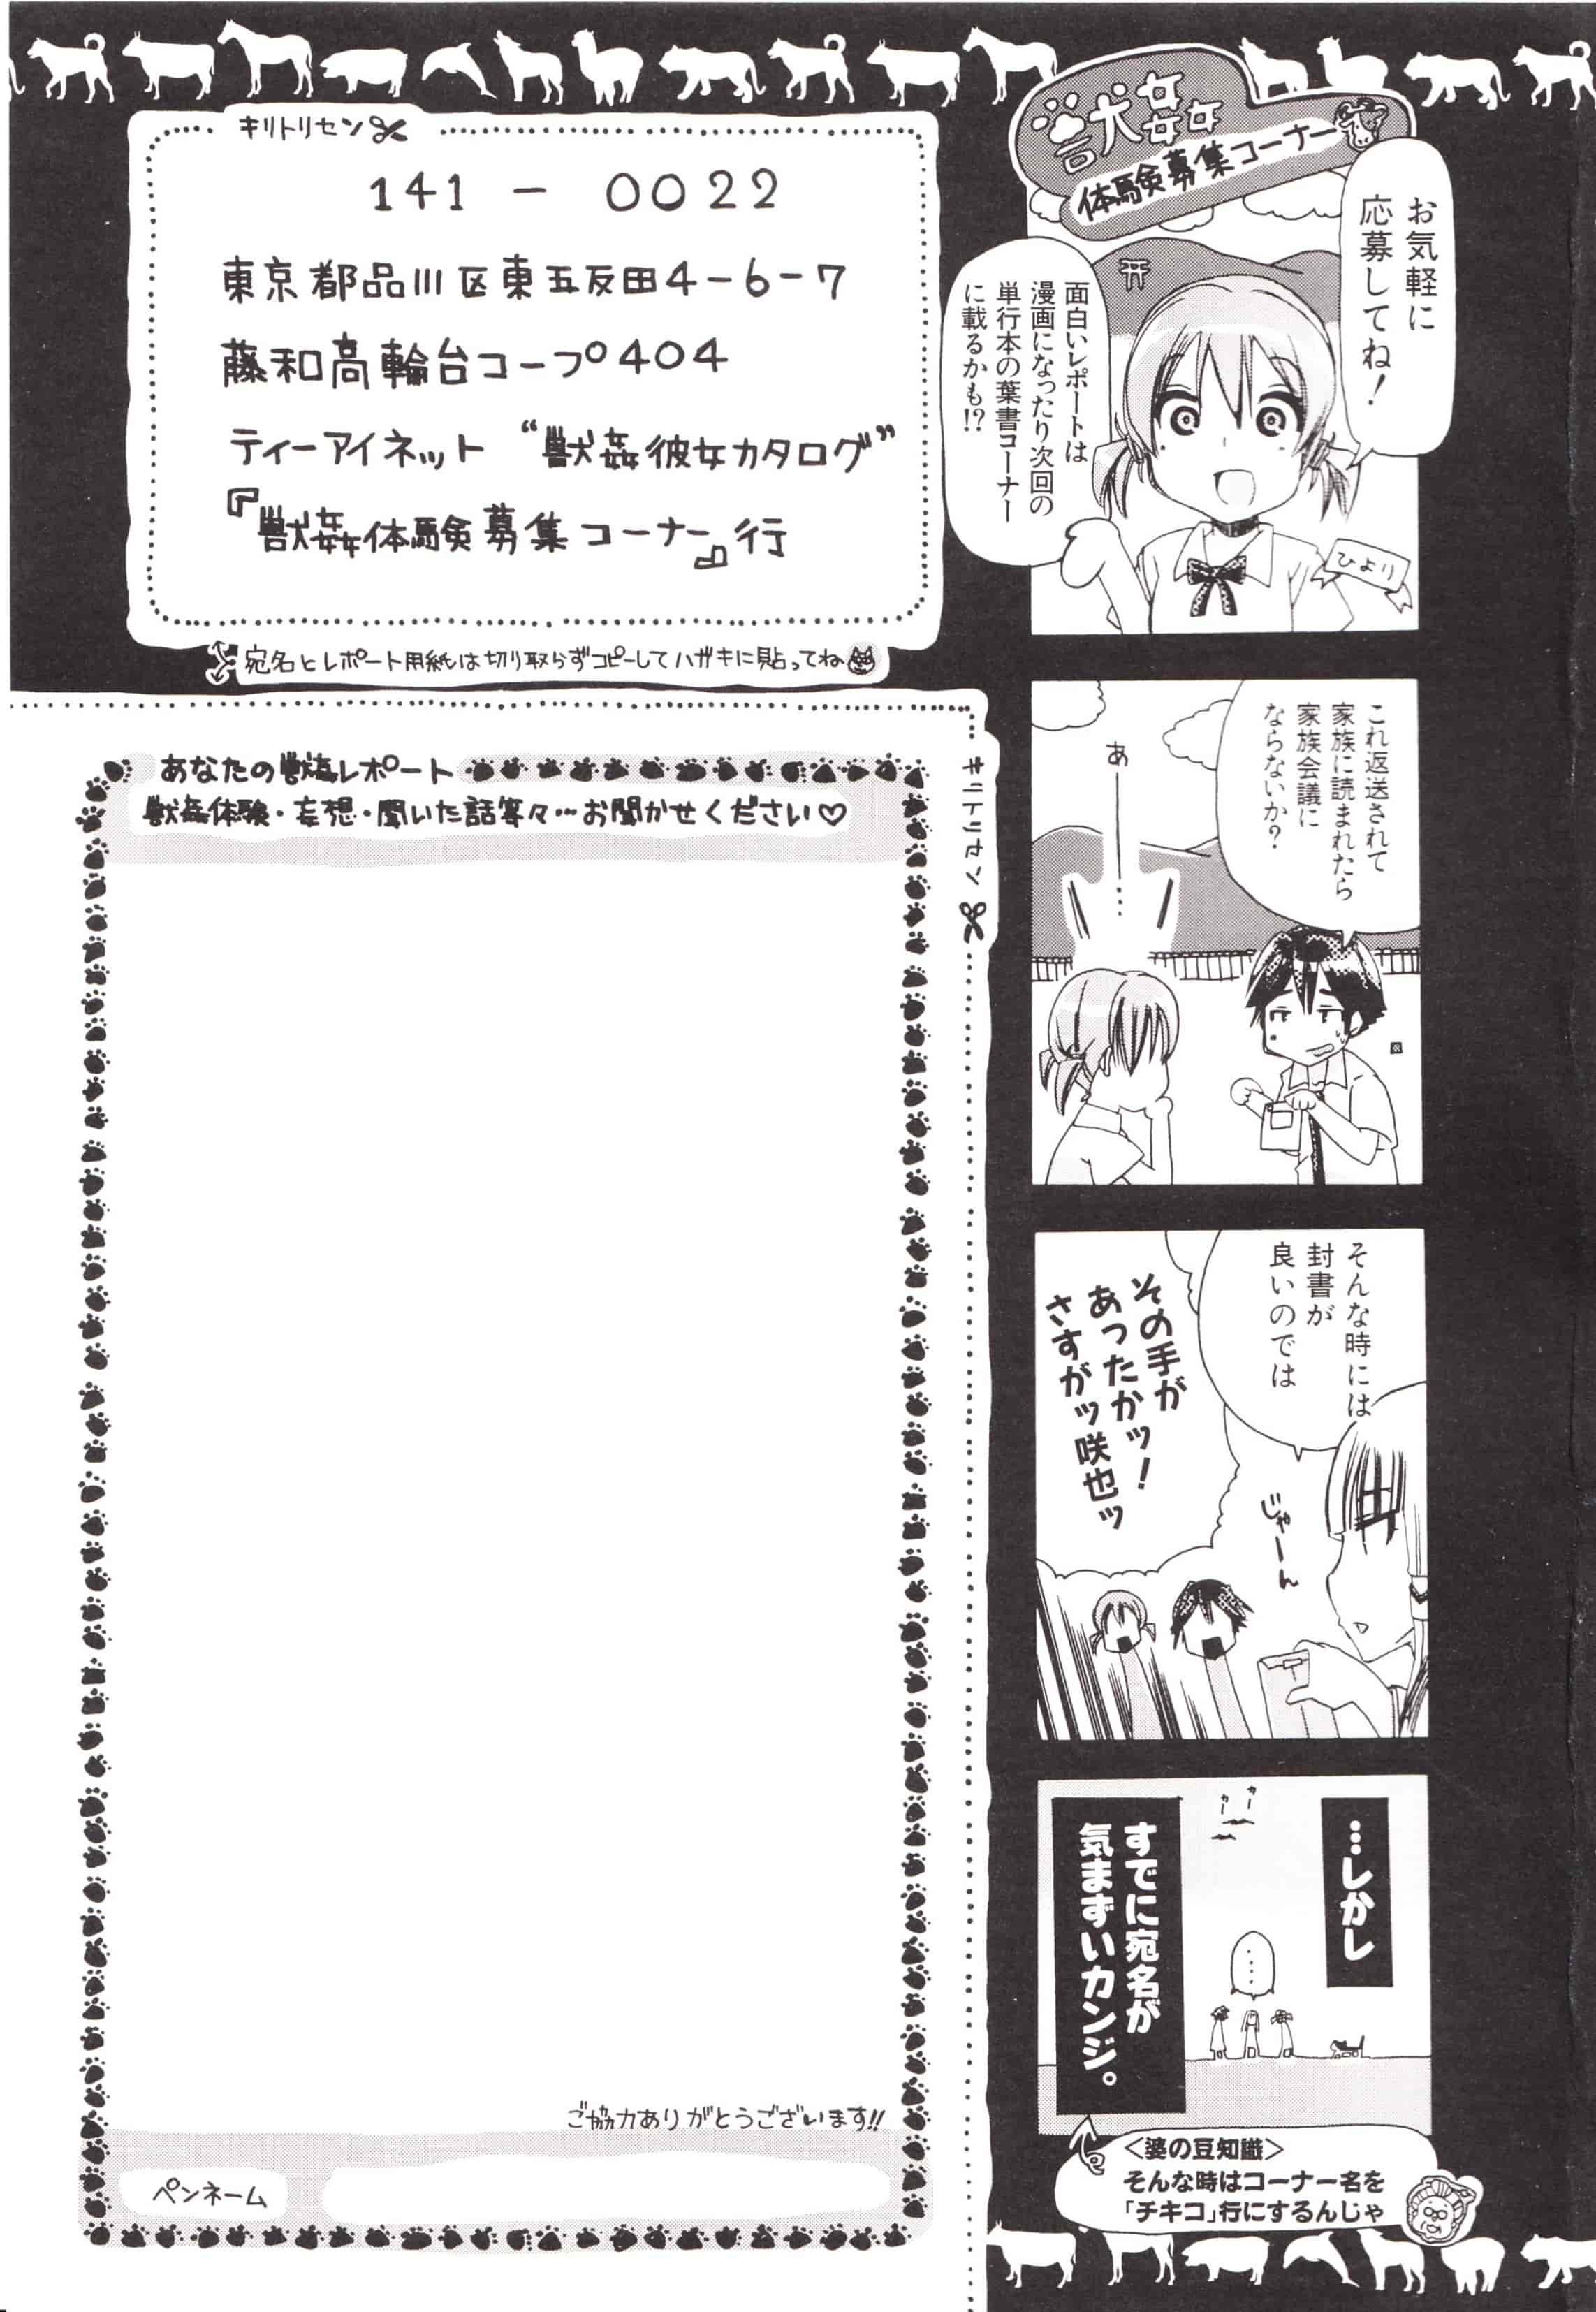 獣姦
体験募集コーナー
お気軽に
応募してね！
面白いレポートは
漫画になったり次回の
単行本の葉書コーナー
に載るかも!?
ひより
これ返送されて
家族に読まれたら
家族会議に
ならないか？
あ――…
そんな時には
封書が
良いのでは
じゃーん
その手が
あったかッ！
さすがッ咲也ッ
…しかし
カー
カー
……
すでに宛名が
気まずいカンジ。
＜婆の豆知識＞
そんな時はコーナー名を
「チキコ」行にするんじゃ
キリトリセン
141－0022
東京都品川区東五反田4－6－7
藤和高輪台コープ404
ティーアイネット “獣姦彼女カタログ”
『獣姦体験募集コーナー』行
宛名とレポート用紙は切り取らずコピーしてハガキに貼ってね
キリトリセン
あなたの獣姦レポート
獣姦体験・妄想・聞いた話等々…お聞かせください♡
ご協力ありがとうございます!!
ペンネーム